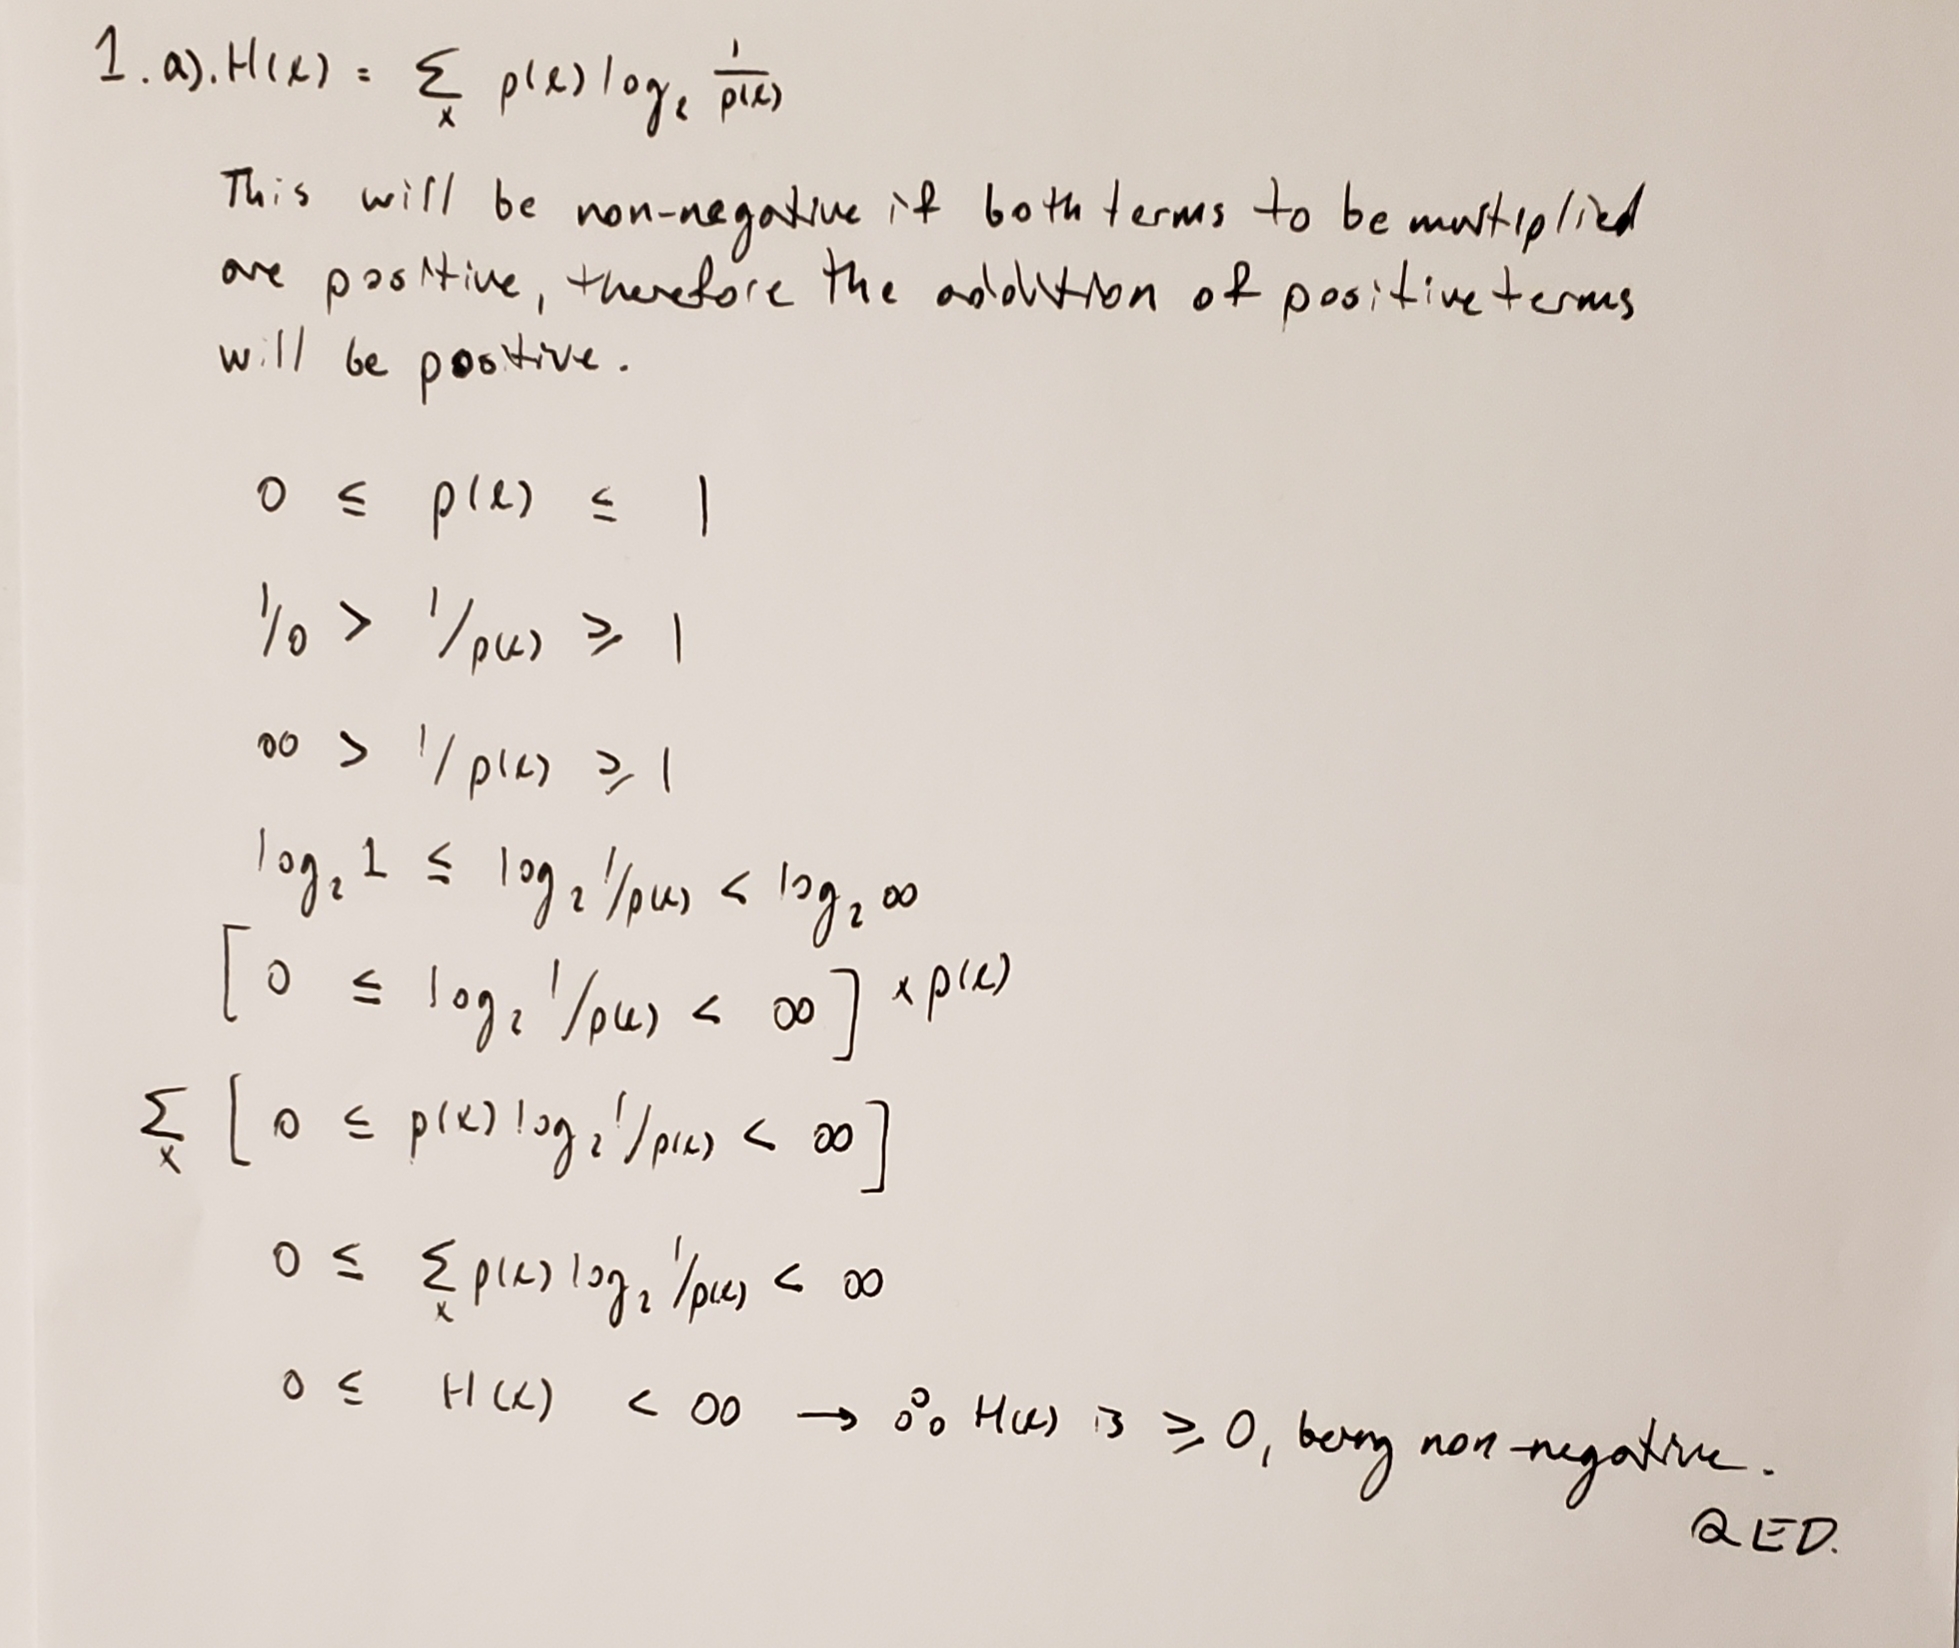 1. a). H(x) = Σ_x p(x) log₂ 1/p(x)
This will be non-negative if both terms to be multiplied
are positive, therefore the addition of positive terms
will be positive.
0 ≤ p(x) ≤ 1
1/0 > 1/p(x) ≥ 1
∞ > 1/p(x) ≥ 1
log₂ 1 ≤ log₂ 1/p(x) < log₂ ∞
[0 ≤ log₂ 1/p(x) < ∞] × p(x)
Σ_x [0 ≤ p(x) log₂ 1/p(x) < ∞]
0 ≤ Σ_x p(x) log₂ 1/p(x) < ∞
0 ≤ H(x) < ∞ → ∴ H(x) is ≥ 0, being non-negative.
QED.